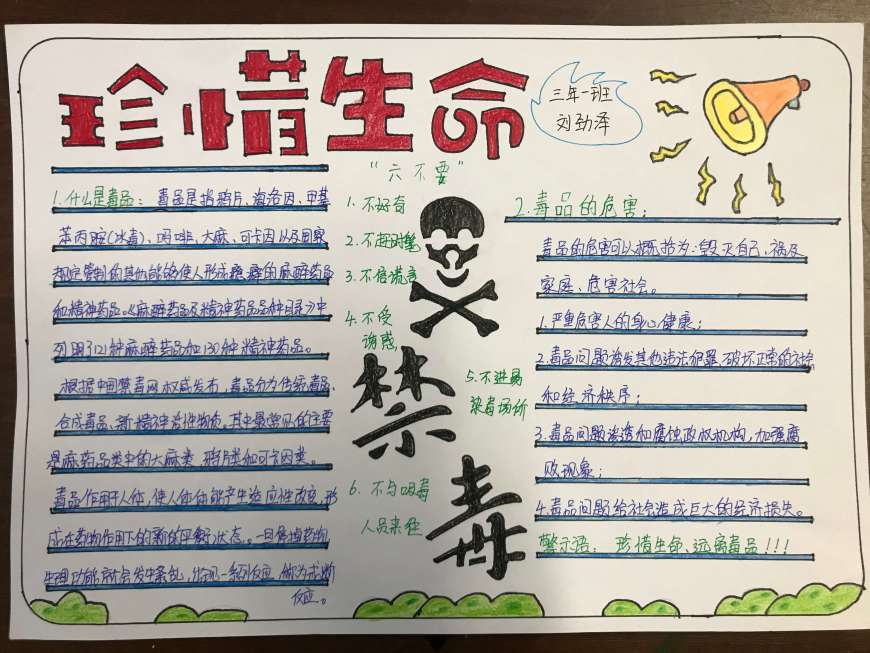 珍惜生命
三年一班
刘劲泽
1.什么是毒品：毒品是指鸦片、海洛因、甲基
苯丙胺(冰毒)、吗啡、大麻、可卡因以及国家
规定管制的其他能够使人形成瘾癖的麻醉药品
和精神药品。《麻醉药品及精神药品品种目录》中
列明了121种麻醉药品和130种精神药品。
根据中国禁毒网权威发布，毒品分为传统毒品、
合成毒品、新精神活性物质，其中最常见的主要
是麻药品类中的大麻类、鸦片类和可卡因类。
毒品作用于人体，使人体体能产生适应性改变，形
成在药物作用下的新的平衡状态。一旦停掉药物，
生理功能就会发生紊乱，出现一系列反应，称为戒断
反应。
“六不要”
1.不好奇
2.不赶时髦
3.不信谎言
4.不受
诱惑
5.不进易
染毒场所
6.不与吸毒
人员来往
禁
毒
2.毒品的危害：
毒品的危害可以概括为：毁灭自己、祸及
家庭、危害社会。
1.严重危害人的身心健康；
2.毒品问题诱发其他违法犯罪、破坏正常的社会
和经济秩序；
3.毒品问题渗透和腐蚀政权机构，加强腐
败现象；
4.毒品问题给社会造成巨大的经济损失。
警示语：珍惜生命、远离毒品！！！